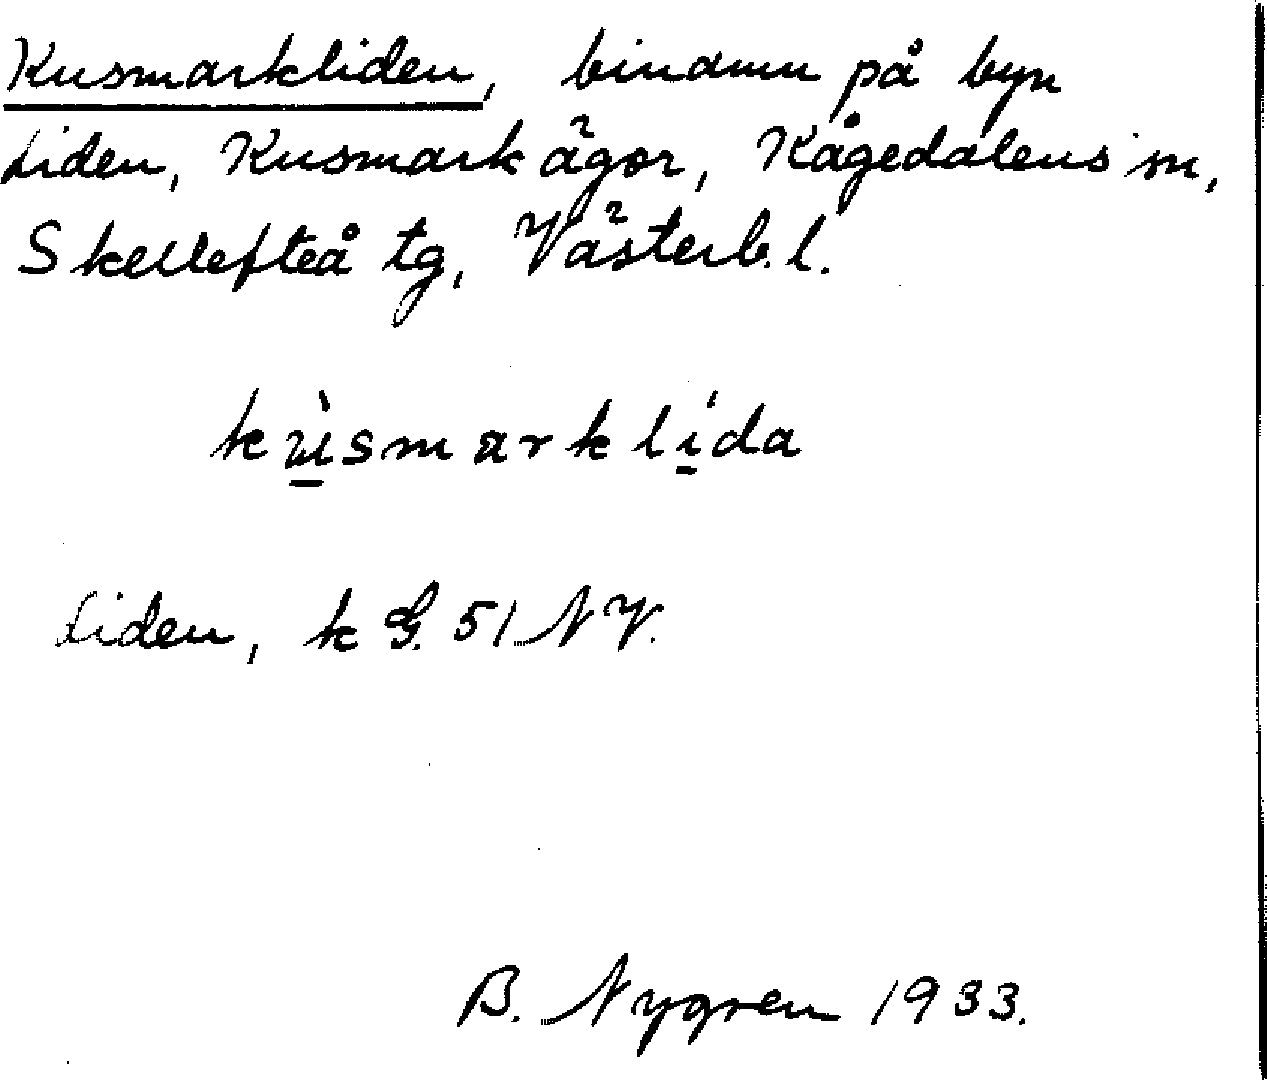 Kusmarkliden, binamn på byn
Liden, Kusmark ägor, Kågedalens sn,
Skellefteå tg, Västerb. l.
kùsmarklída
Liden, k G. 51 NV.
B. Nygren 1933.